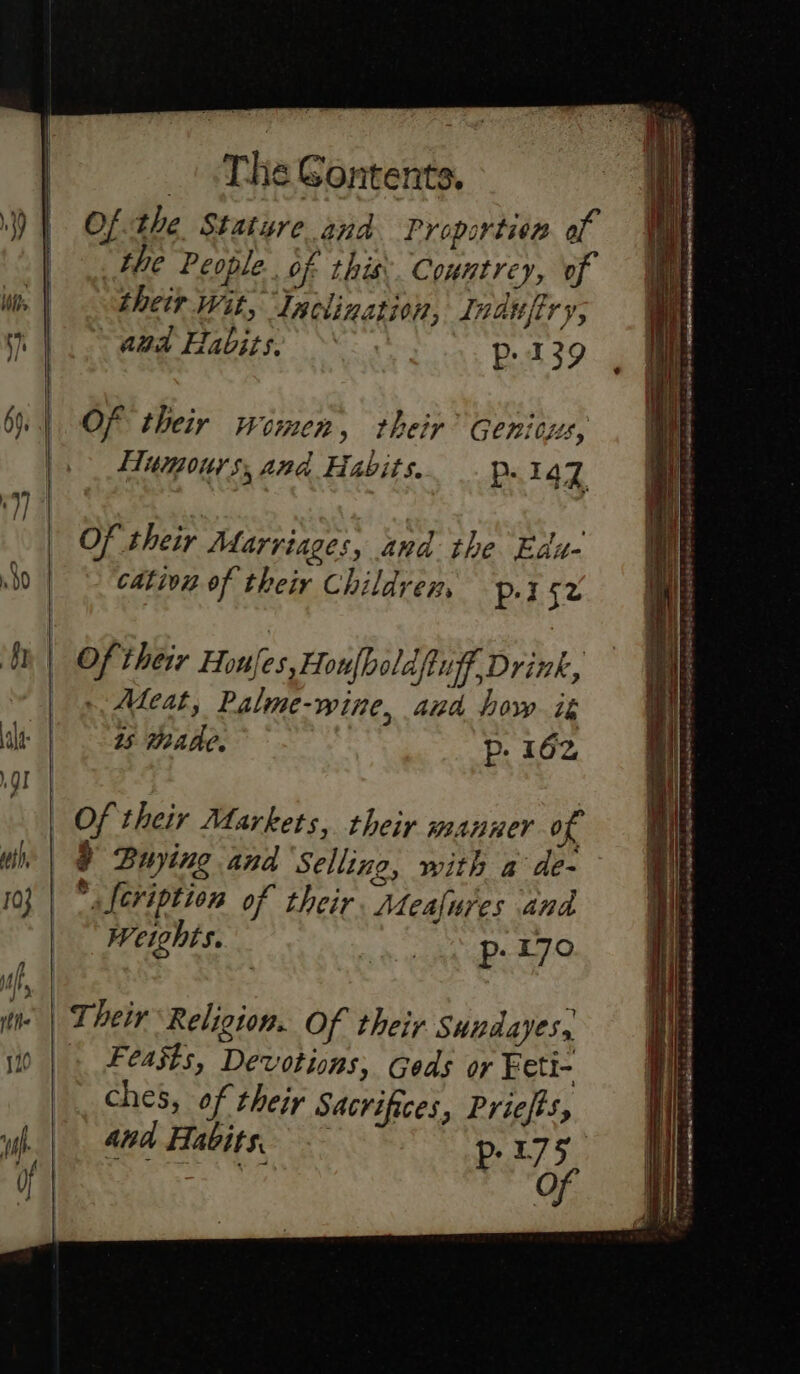 The Contents.
Of the Stature and Proportion of
the People of this Countrey, of
their Wit, Inclination, Induſtry,
and Habits. p. 139
Of their Women, their Genious,
Humours, and Habits. p. 147
Of their Marriages, and the Edu-
cation of their Children, p. 152
Of their Houſes, Houſholdſtuff, Drink,
Meat, Palme-wine, and how it
is made. p. 162
Of their Markets, their manner of
Buying and Selling, with a de-
ſcription of their Meaſures and
Weights. p. 170
Their Religion. Of their Sundayes,
Feaſts, Devotions, Gods or Feti-
ches, of their Sacrifices, Prieſts,
and Habits, p. 175
Of